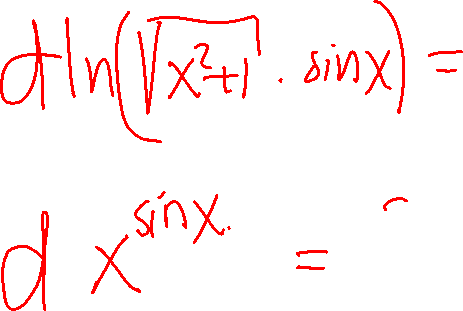 d ln(√(x²+1) · sinx) =
d x^sinx. =